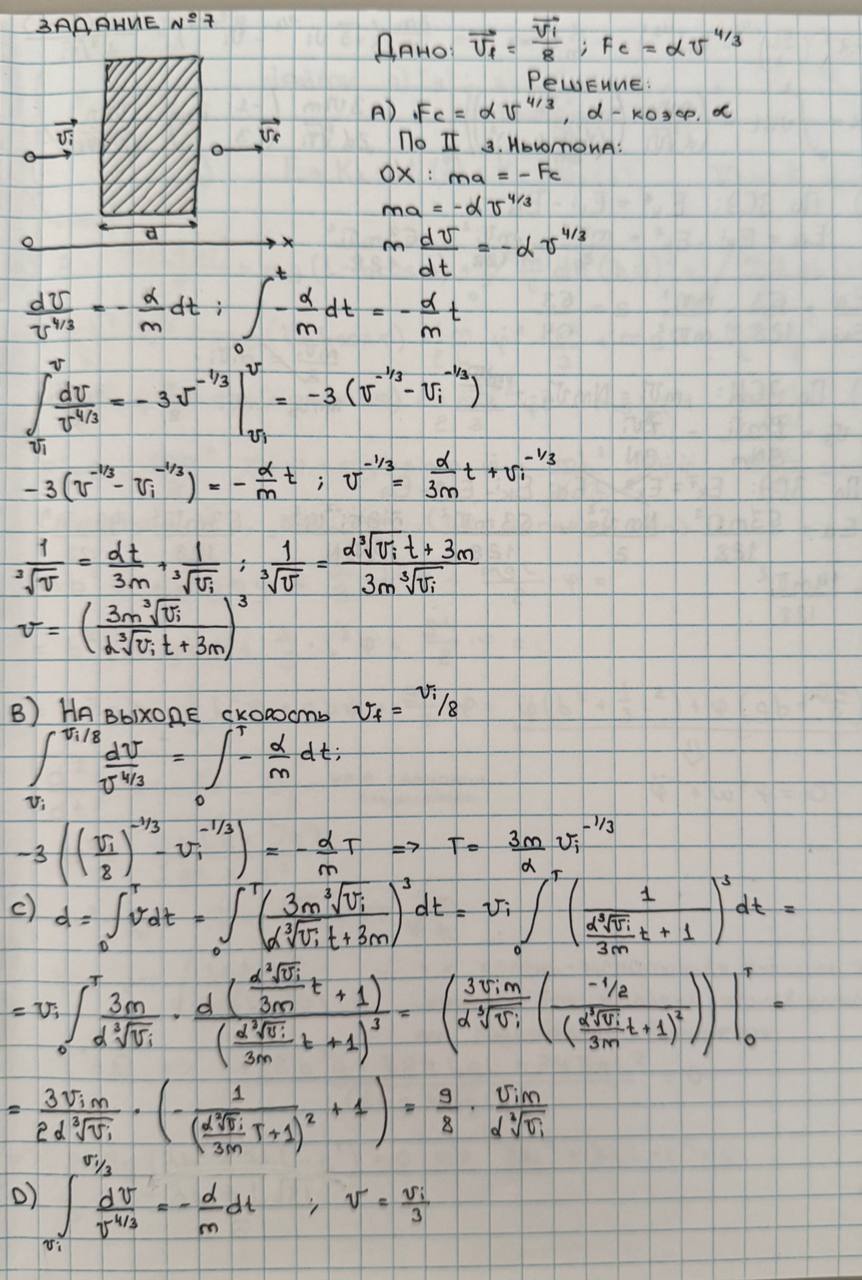 ЗАДАНИЕ №7
Дано: v⃗_f = v⃗_i/8 ; Fc = αv^{4/3}
Решение:
A) Fc = αv^{4/3}, α - коэф. α
По II з. Ньютона:
OX: ma = -Fc
ma = -αv^{4/3}
m dv/dt = -αv^{4/3}
v⃗_i
v⃗_f
d
0 x
dv/v^{4/3} = -α/m dt ; ∫_0^t -α/m dt = -α/m t
∫_{v_i}^{v} dv/v^{4/3} = -3v^{-1/3} |_{v_i}^{v} = -3(v^{-1/3} - v_i^{-1/3})
-3(v^{-1/3} - v_i^{-1/3}) = -α/m t ; v^{-1/3} = α/3m t + v_i^{-1/3}
1/∛v = αt/3m + 1/∛v_i ; 1/∛v = (α∛v_i t + 3m)/(3m∛v_i)
v = (3m∛v_i/(α∛v_i t + 3m))^3
B) На выходе скорость v_f = v_i/8
∫_{v_i}^{v_i/8} dv/v^{4/3} = ∫_0^T -α/m dt;
-3((v_i/8)^{-1/3} - v_i^{-1/3}) = -α/m T => T = 3m/α v_i^{-1/3}
C) d = ∫_0^T vdt = ∫_0^T (3m∛v_i/(α∛v_i t + 3m))^3 dt = v_i ∫_0^T (1/(α∛v_i/3m t + 1))^3 dt =
= v_i ∫_0^T 3m/α∛v_i · d(α∛v_i/3m t + 1)/(α∛v_i/3m t + 1)^3 = (3v_i m/α∛v_i (-1/2/(α∛v_i/3m t + 1)^2)) |_0^T =
= 3v_i m/2α∛v_i · (-1/(α∛v_i/3m T + 1)^2 + 1) = 9/8 · v_i m/α∛v_i
D) ∫_{v_i}^{v_i/3} dv/v^{4/3} = -α/m dt ; v = v_i/3